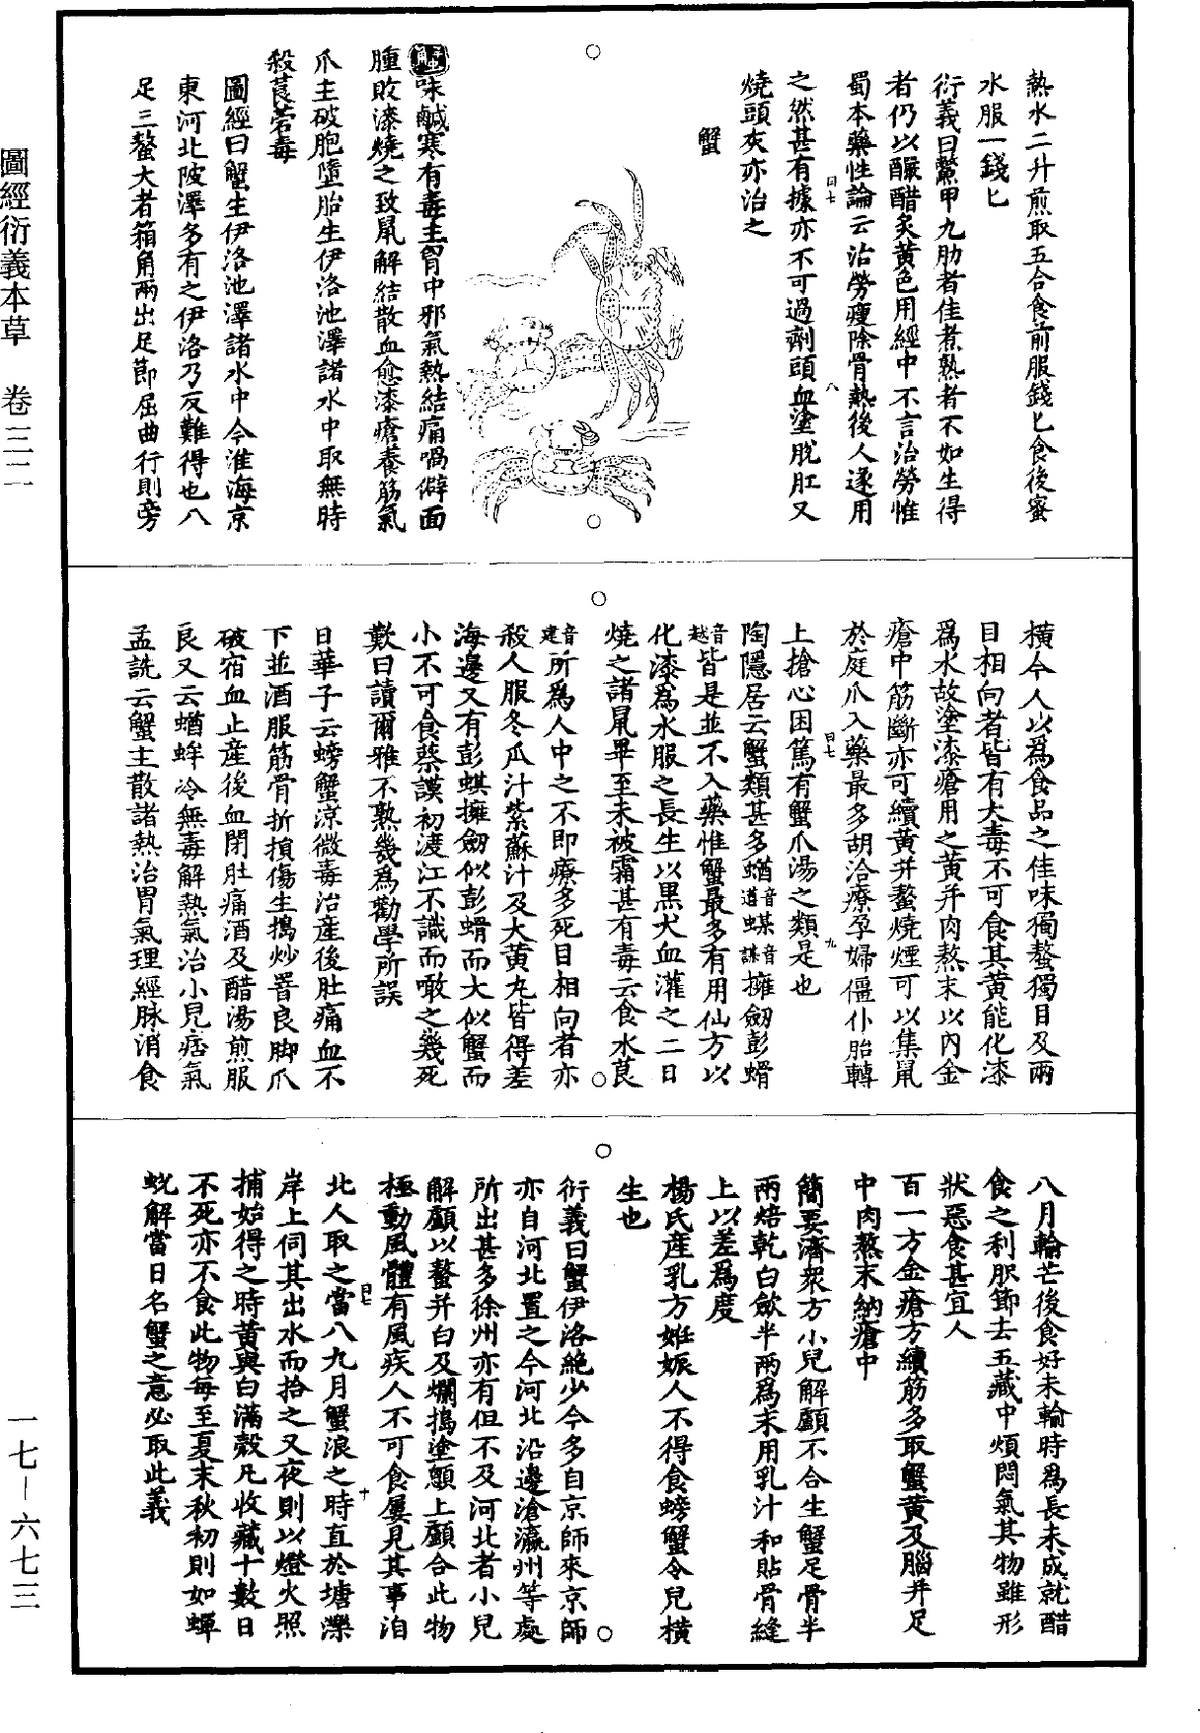 熱水二升煎取五合食前服錢匕食後蜜
水服一錢匕
衍義曰鱉甲九肋者佳煮熟者不如生得
者仍以釅醋炙黃色用經中不言治勞惟
蜀本藥性論云治勞瘦除骨熱後人遂用
之然甚有據亦不可過劑頭血塗脫肛又
燒頭灰亦治之
蟹
蟹味鹹寒有毒主胷中邪氣熱結痛喎僻面
腫敗漆燒之致鼠解結散血愈漆瘡養筋氣
爪主破胞墮胎生伊洛池澤諸水中取無時
殺莨菪毒
圖經曰蟹生伊洛池澤諸水中今淮海京
東河北陂澤多有之伊洛乃反難得也八
足三螯大者箱角兩出足節屈曲行則旁
橫今人以為食品之佳味獨螯獨目及兩
目相向者皆有大毒不可食其黃能化漆
為水故塗漆瘡用之黃并肉熬末以內金
瘡中筋斷亦可續黃并螯燒煙可以集鼠
於庭爪入藥最多胡洽療孕婦僵仆胎轉
上搶心困篤有蟹爪湯之類是也
陶隱居云蟹類甚多蝤音遒蝥音謀擁劒彭螖
音越皆是並不入藥惟蟹最多有用仙方以
化漆為水服之長生以黑犬血灌之二日
燒之諸鼠畢至未被霜甚有毒云食水莨
音建所為人中之不即療多死目相向者亦
殺人服冬瓜汁紫蘇汁及大黃丸皆得差
海邊又有彭蜞擁劒似彭螖而大似蟹而
小不可食蔡謨初渡江不識而噉之幾死
歎曰讀爾雅不熟幾為勸學所誤
日華子云螃蟹涼微毒治產後肚痛血不
下並酒服筋骨折損傷生搗炒罯良脚爪
破宿血止產後血閉肚痛酒及醋湯煎服
良又云蝤蛑冷無毒解熱氣治小兒痞氣
孟詵云蟹主散諸熱治胃氣理經脉消食
八月輸芒後食好未輸時為長未成就醋
食之利肢節去五藏中煩悶氣其物雖形
狀惡食甚宜人
百一方金瘡方續筋多取蟹黃及腦并足
中肉熬末納瘡中
簡要濟衆方小兒解顱不合生蟹足骨半
兩焙乾白歛半兩為末用乳汁和貼骨縫
上以差為度
楊氏產乳方姙娠人不得食螃蟹令兒橫
生也
衍義曰蟹伊洛絕少今多自京師來京師
亦自河北置之今河北沿邊滄瀛州等處
所出甚多徐州亦有但不及河北者小兒
解顱以螯并白及爛搗塗顖上顱合此物
極動風體有風疾人不可食屢見其事洎
北人取之當八九月蟹浪之時直於塘濼
岸上伺其出水而拾之又夜則以燈火照
捕始得之時黃與白滿殼凡收藏十數日
不死亦不食此物每至夏末秋初則如蟬
蛻解當日名蟹之意必取此義
圖經衍義本草　卷三二
一七—六七三